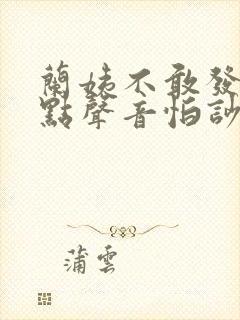 蘭姨不敢發
點聲音怕訬
蒲雲